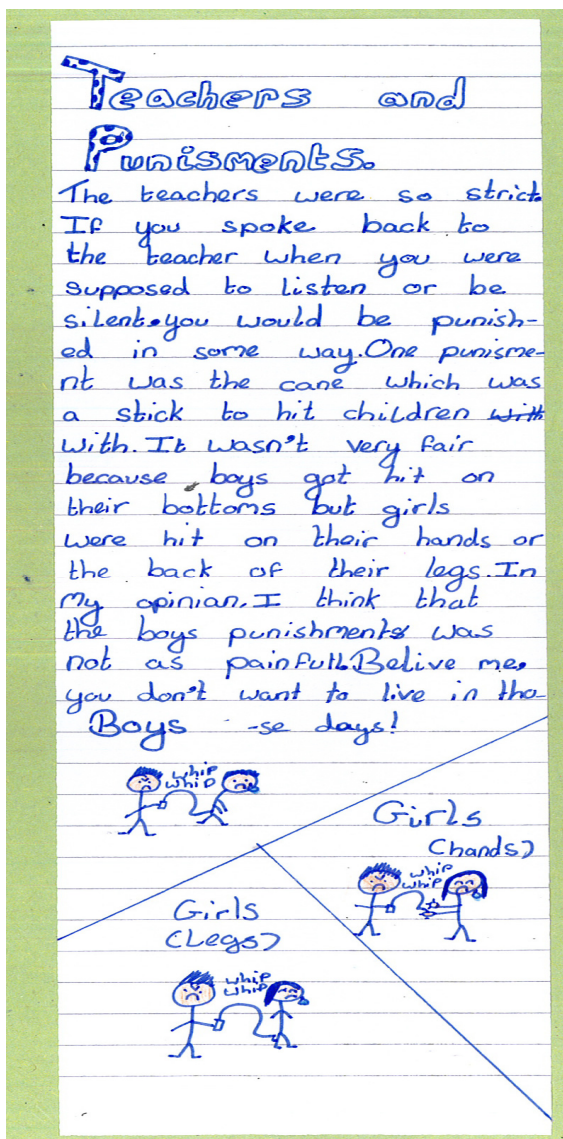 Teachers and
Punisments.
The teachers were so strict.
If you spoke back to
the teacher when you were
supposed to listen or be
silent.you would be punish-
ed in some way.One punisme-
nt was the cane which was
a stick to hit children with
with. It wasn't very fair
because boys got hit on
their bottoms but girls
were hit on their hands or
the back of their legs.In
my opinian.I think that
the boys punishments was
not as painfull.Belive me,
you don't want to live in tho-
-se days!
Boys
whip
whip
Girls
(hands)
whip
whip
Girls
(Legs)
whip
whip